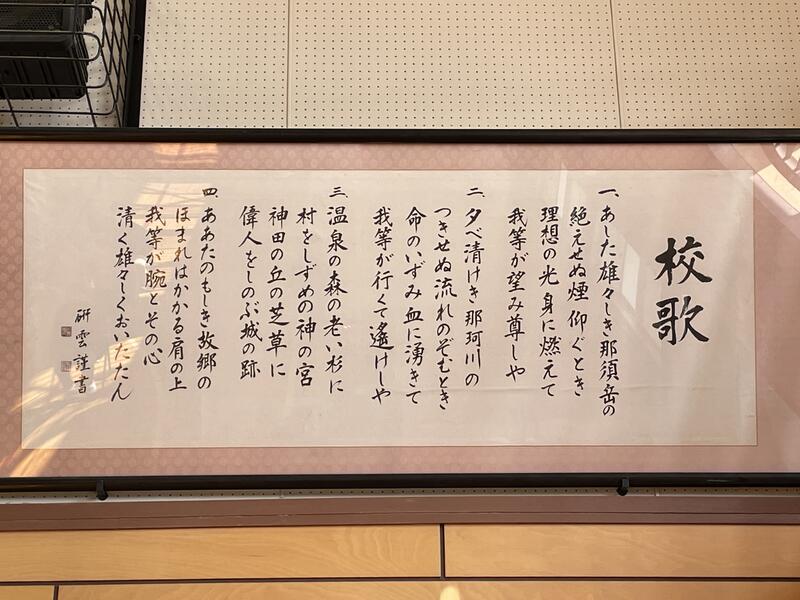 校歌
一、あした雄々しき那須岳の
絶えせぬ煙仰ぐとき
理想の光身に燃えて
我等が望み尊しや
二、夕べ清けき那珂川の
つきせぬ流れのぞむとき
命のいずみ血に湧きて
我等が行くて遙けしや
三、温泉の森の老い杉に
村をしずめの神の宮
神田の丘の芝草に
偉人をしのぶ城の跡
四、ああたのもしき故郷の
ほまれはかかる肩の上
我等が腕とその心
清く雄々しくおいたたん
研雲謹書